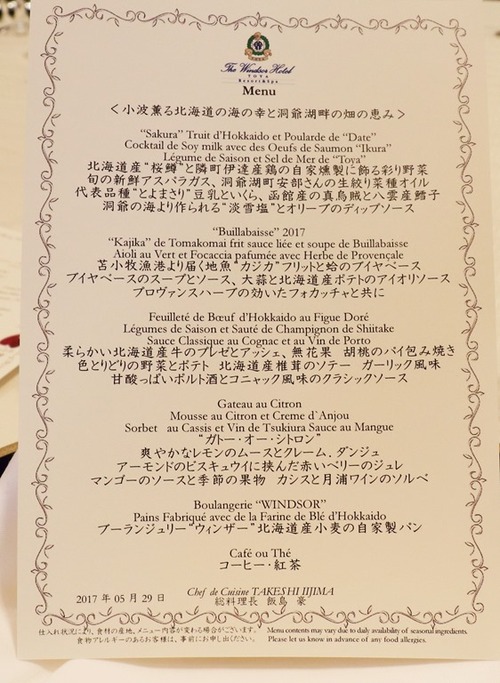 The Windsor Hotel
TOYA
Resort&Spa
Menu
<小波薫る北海道の海の幸と洞爺湖畔の畑の恵み>
"Sakura" Truit d'Hokkaido et Poularde de "Date"
Cocktail de Soy milk avec des Oeufs de Saumon "Ikura"
Légume de Saison et Sel de Mer de "Toya"
北海道産"桜鱒"と隣町伊達産鶏の自家燻製に飾る彩り野菜
旬の新鮮アスパラガス、洞爺湖町安部さんの生絞り菜種オイル
代表品種"とよまさり"豆乳といくら、函館産の真烏賊と八雲産鱈子
洞爺の海より作られる"淡雪塩"とオリーブのディップソース
"Buillabaisse" 2017
"Kajika" de Tomakomai frit sauce liée et soupe de Buillabaisse
Aioli au Vert et Focaccia pafumée avec Herbe de Provençale
苫小牧漁港より届く地魚"カジカ"フリットと蛤のブイヤベース
ブイヤベースのスープとソース、大蒜と北海道産ポテトのアイオリソース
プロヴァンスハーブの効いたフォカッチャと共に
Feuilleté de Bœuf d'Hokkaido au Figue Doré
Légumes de Saison et Sauté de Champignon de Shiitake
Sauce Classique au Cognac et au Vin de Porto
柔らかい北海道産牛のブレゼとアッシェ、無花果 胡桃のパイ包み焼き
色とりどりの野菜とポテト 北海道産椎茸のソテー ガーリック風味
甘酸っぱいポルト酒とコニャック風味のクラシックソース
Gateau au Citron
Mousse au Citron et Creme d`Anjou
Sorbet au Cassis et Vin de Tsukiura Sauce au Mangue
"ガトー・オー・シトロン"
爽やかなレモンのムースとクレーム．ダンジュ
アーモンドのビスキュウイに挟んだ赤いベリーのジュレ
マンゴーのソースと季節の果物 カシスと月浦ワインのソルベ
Boulangerie "WINDSOR"
Pains Fabriqué avec de la Farine de Blé d'Hokkaido
ブーランジュリー"ウィンザー"北海道産小麦の自家製パン
Café ou Thé
コーヒー・紅茶
Chef de Cuisine TAKESHI IIJIMA
2017 年 05 月 29 日 総料理長 飯島 豪
仕入れ状況により、食材の産地、メニュー内容が変わる場合がございます。 Menu contents may vary due to daily availability of seasonal ingredients.
食物アレルギーのあるお客様は、事前にお申し出ください。 Please let us know in advance of any food allergies.